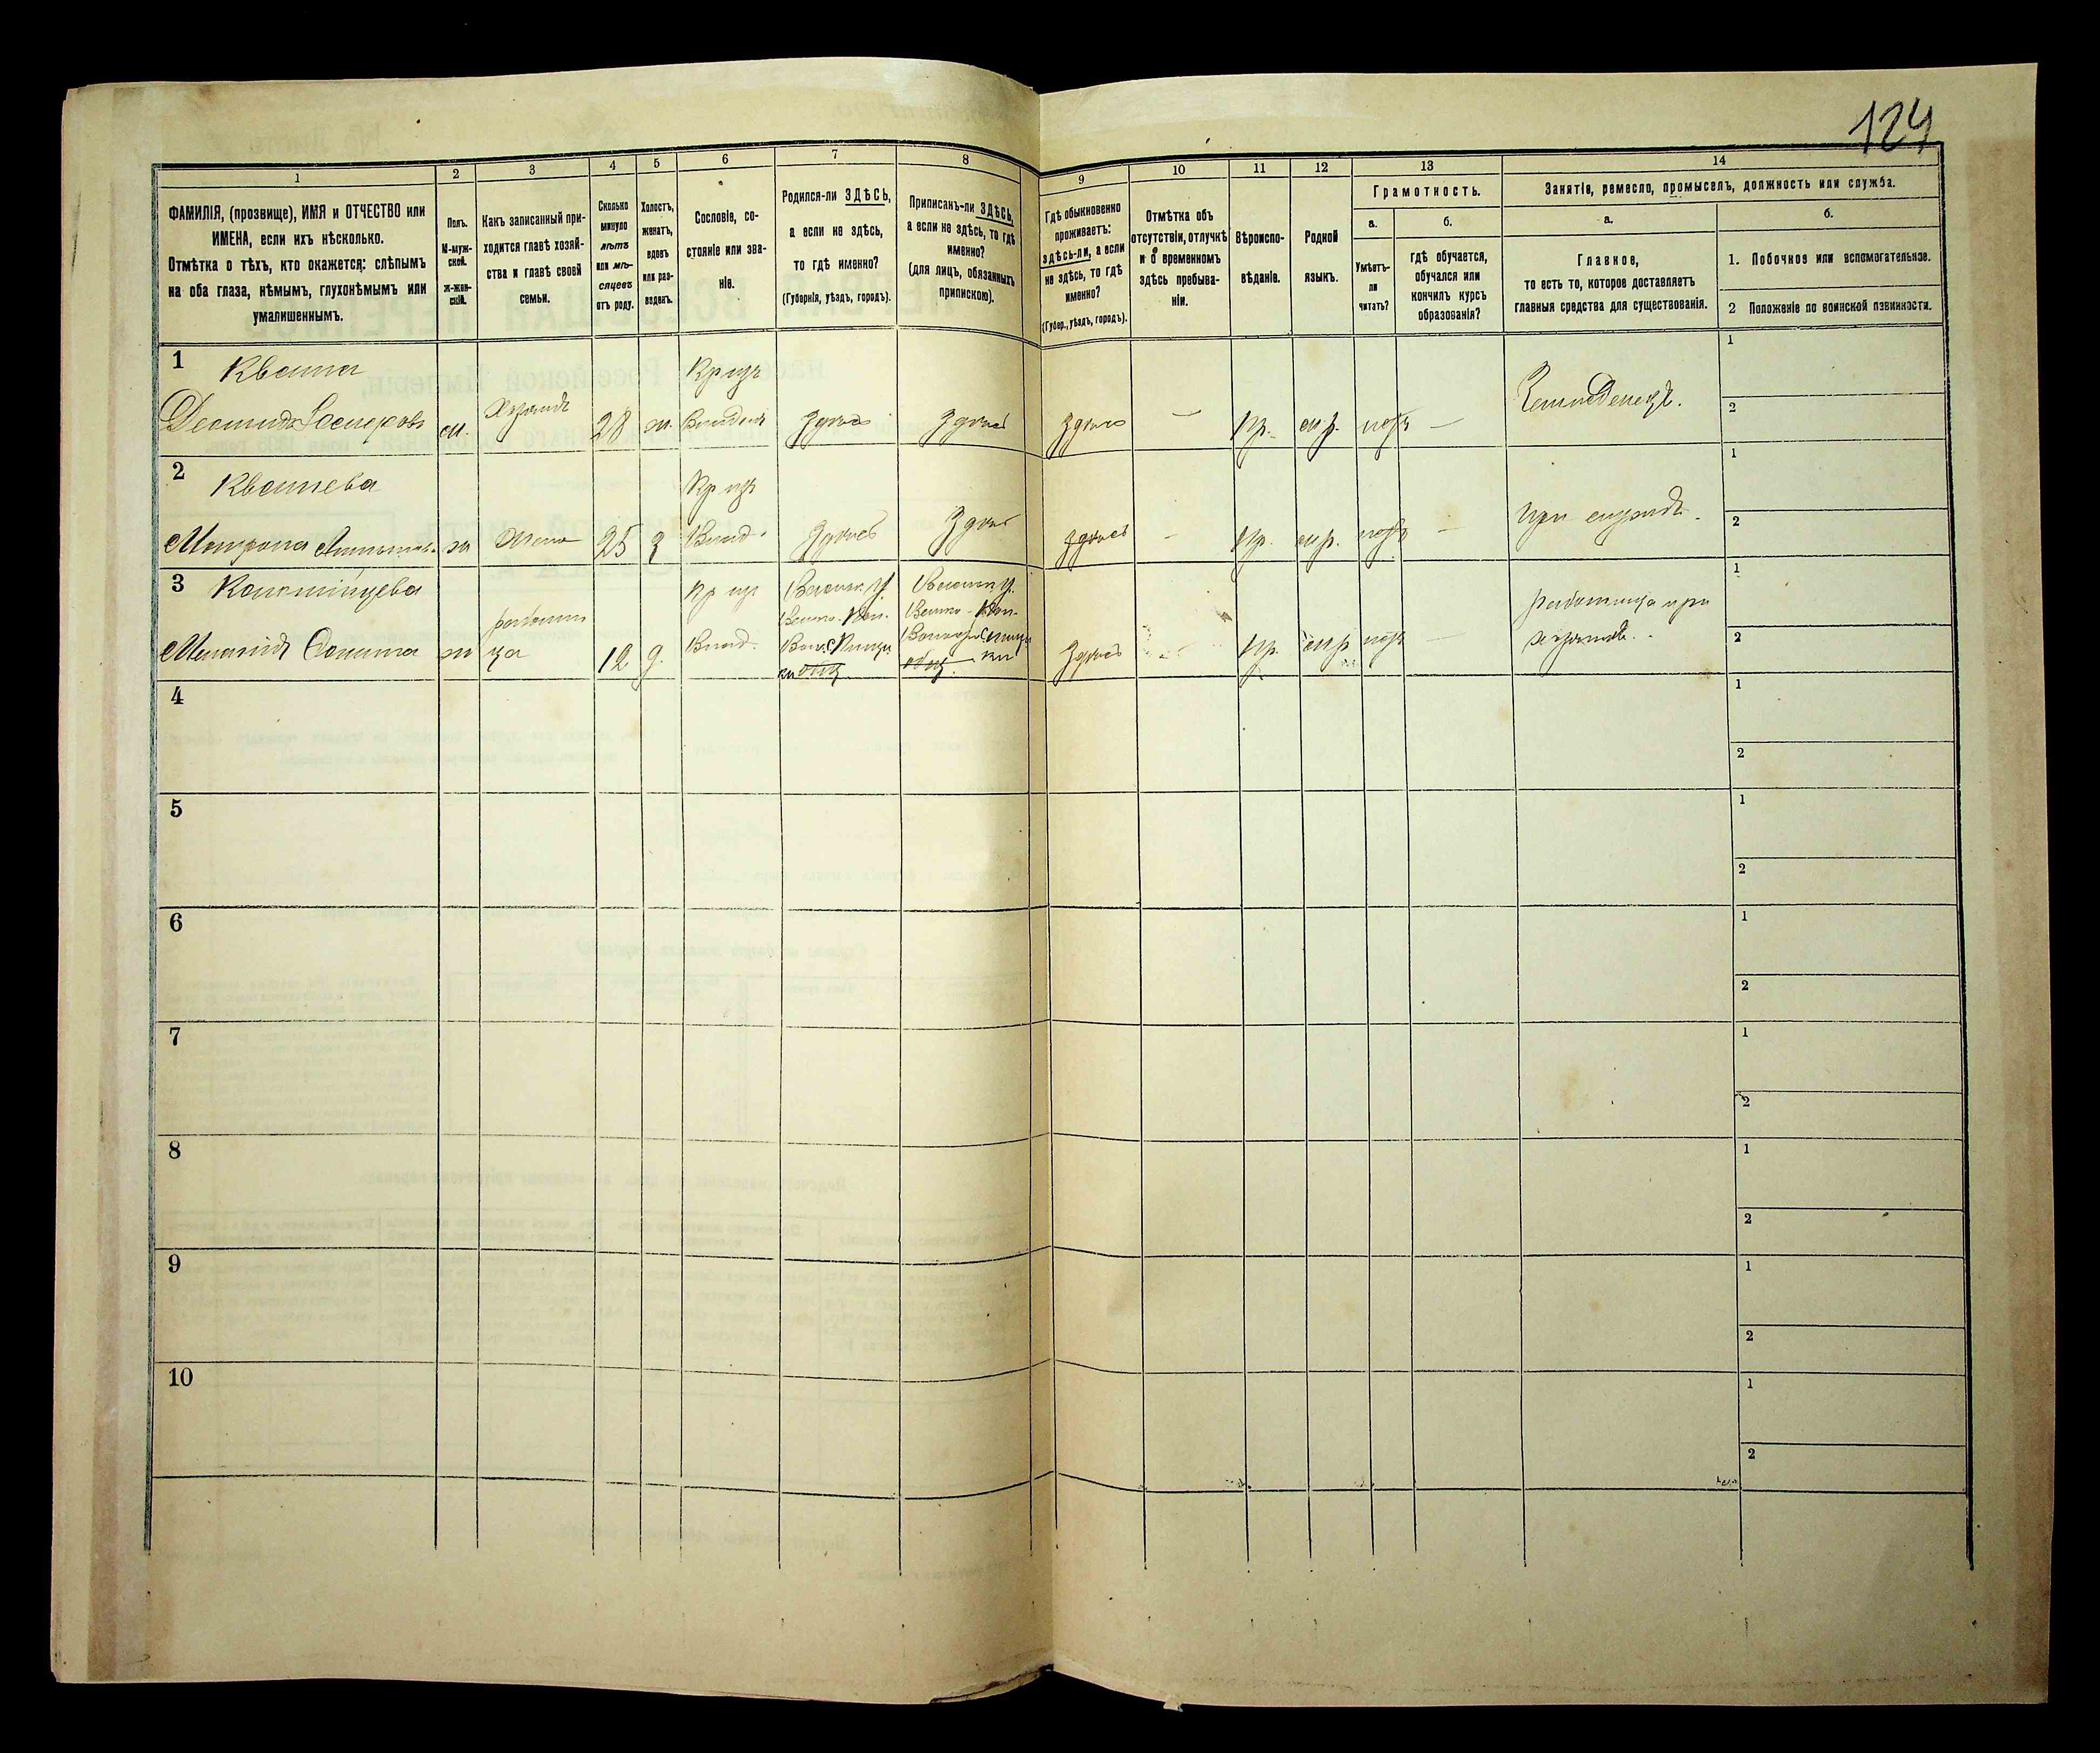 124
1
2
3
4
5
6
7
8
9
10
11
12
13
14
ФАМИЛІЯ, (прозвище), ИМЯ и ОТЧЕСТВО или
ИМЕНА, если ихъ нѣсколько.
Отмѣтка о тѣхъ, кто окажется: слѣпымъ
на оба глаза, нѣмымъ, глухонѣмымъ или
умалишеннымъ.
Полъ.
М-муж-
ской.
ж-жен-
скій.
Какъ записанный при-
ходится главѣ хозяй-
ства и главѣ своей
семьи.
Сколько
минуло
лѣтъ
или мѣ-
сяцевъ
отъ роду.
Холостъ,
женатъ,
вдовъ
или раз-
веденъ.
Сословіе, со-
стояніе или зва-
ніе.
Родился-ли ЗДѢСЬ,
а если не здѣсь,
то гдѣ именно?
(Губернія, уѣздъ, городъ).
Приписанъ-ли ЗДѢСЬ,
а если не здѣсь, то гдѣ
именно?
(для лицъ, обязанныхъ
припискою).
Гдѣ обыкновенно
проживаетъ:
здѣсь-ли, а если
не здѣсь, то гдѣ
именно?
(Губер., уѣздъ, городъ).
Отмѣтка объ
отсутствіи, отлучкѣ
и о временномъ
здѣсь пребыва-
ніи.
Вѣроиспо-
вѣданіе.
Родной
языкъ.
Грамотность.
а.
Умѣетъ-
ли
читать?
б.
гдѣ обучается,
обучался или
кончилъ курсъ
образованія?
Занятіе, ремесло, промыселъ, должность или служба.
а.
Главное,
то есть то, которое доставляетъ
главныя средства для существованія.
б.
1. Побочное или вспомогательное.
2 Положеніе по воинской повинности.
1 Кваша
м. Хозяинъ 28 ж. Кр изъ Владѣл Здѣсь Здѣсь Здѣсь — Пр. мр. нѣтъ — Земледѣлецъ.
1
2
2 Квашева
Матрона ж Жена 25 З Кр изъ Влад. Здѣсь Здѣсь Здѣсь — Пр. мр. нѣтъ — При мужѣ.
1
2
3
ж работни
ца 12 д. Кр из Влад. Здѣсь Пр. мр нѣтъ — работница при
хозяинѣ.
1
2
4
1
2
5
1
2
6
1
2
7
1
2
8
1
2
9
1
2
10
1
2